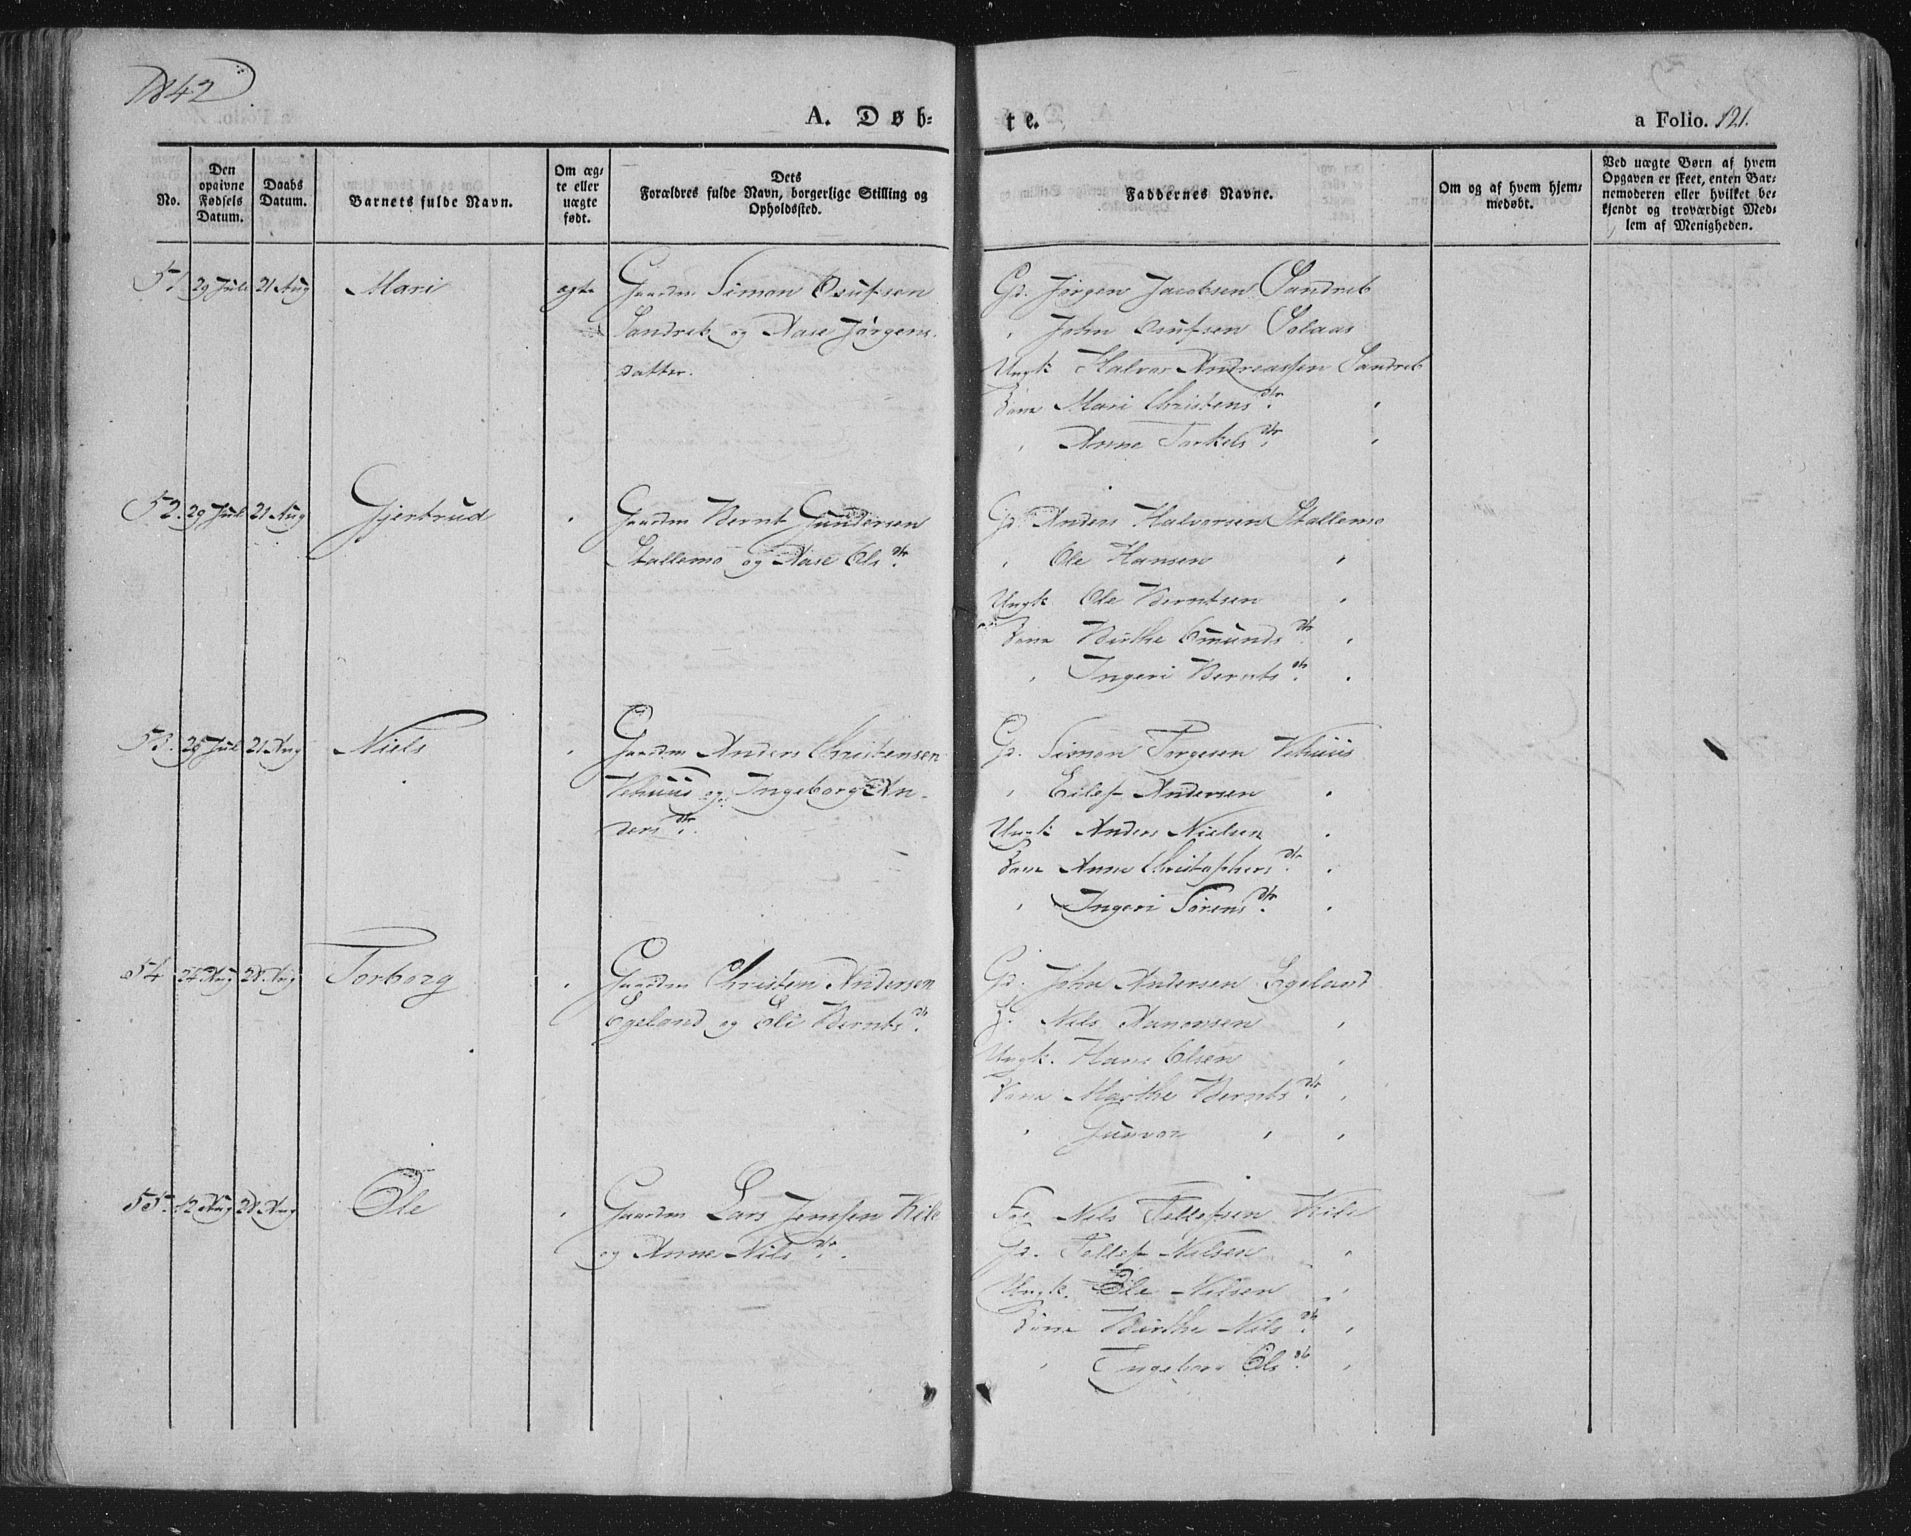 1842
A. Døb-
te.
a Folio. 121.
No.
Den opgivne Fødsels Datum.
Daabs Datum.
Barnets fulde Navn.
Om ægte eller uægte født.
Dets Forældres fulde Navn, borgerlige Stilling og Opholdssted.
Faddernes Navne.
Om og af hvem hjemmedøbt.
Ved uægte Børn af hvem Opgaven er skeet, enten Barnemoderen eller hvilket bekjendt og troværdigt Medlem af Menigheden.
51 29 Juli 21 Aug Mari ægte Gaardm Simon Osufsen
Sandreb og Aase Jørgens-
datter.
Gd. Jørgen Jacobsen Sandreb
" John Osufsen Solaas
Ungk Halvor Andreassen Sandreb
Mari Christens dtr. "
" Anne Torkels dtr. "
52. 29 Juli 21 Aug Gjertrud " Gaardm Bernt Gundersen
Stallemo og Aase Ols dtr.
Gd. Anders Halvorsen Stallemo
" Ole Hansen "
Ungk Ole Berntsen "
Birthe Omunds dtr. "
" Ingeri Bernts dtr. "
53. 29 Juli 21 Aug Niels " Gaardm Anders Christensen
Vehuus og Ingeborg An-
ders dtr.
Gd. Simon Torgesen Vehuus
" Eilef Andersen "
Ungk Anders Nielsen "
Anne Christophers dtr. "
" Ingeri Sørens dtr. "
54 24 Aug 28 Aug Torborg " Gaardm Christen Andersen
Egeland og Eli Bernts dtr.
Gd. John Andersen Egeland
Nils Aanonsen "
Ungk. Hans Olsen "
Marthe Bernts dtr. "
" Gunvor " "
55. 12 Aug 28 Aug Ole " Gaardm Lars Jensen Kile
og Anne Nils dtr.
Nils Tellefsen Kile
Gd. Tellef Nilsen "
Ungk. Ole Nilsen "
Birthe Nils dtr. "
" Ingeborg Ols dtr. "